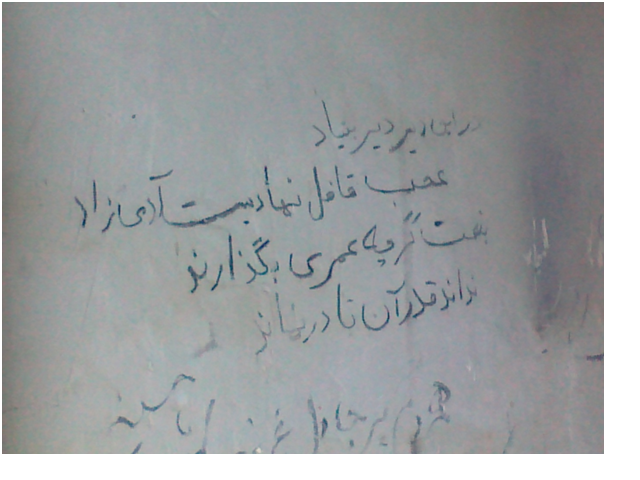 در این دیر دیر بنیاد
عجب قافل نهادیست آدمی زاد
بغت گرچه عمری بگذارند
نداند قدر آن تا در نماند
مردم بر